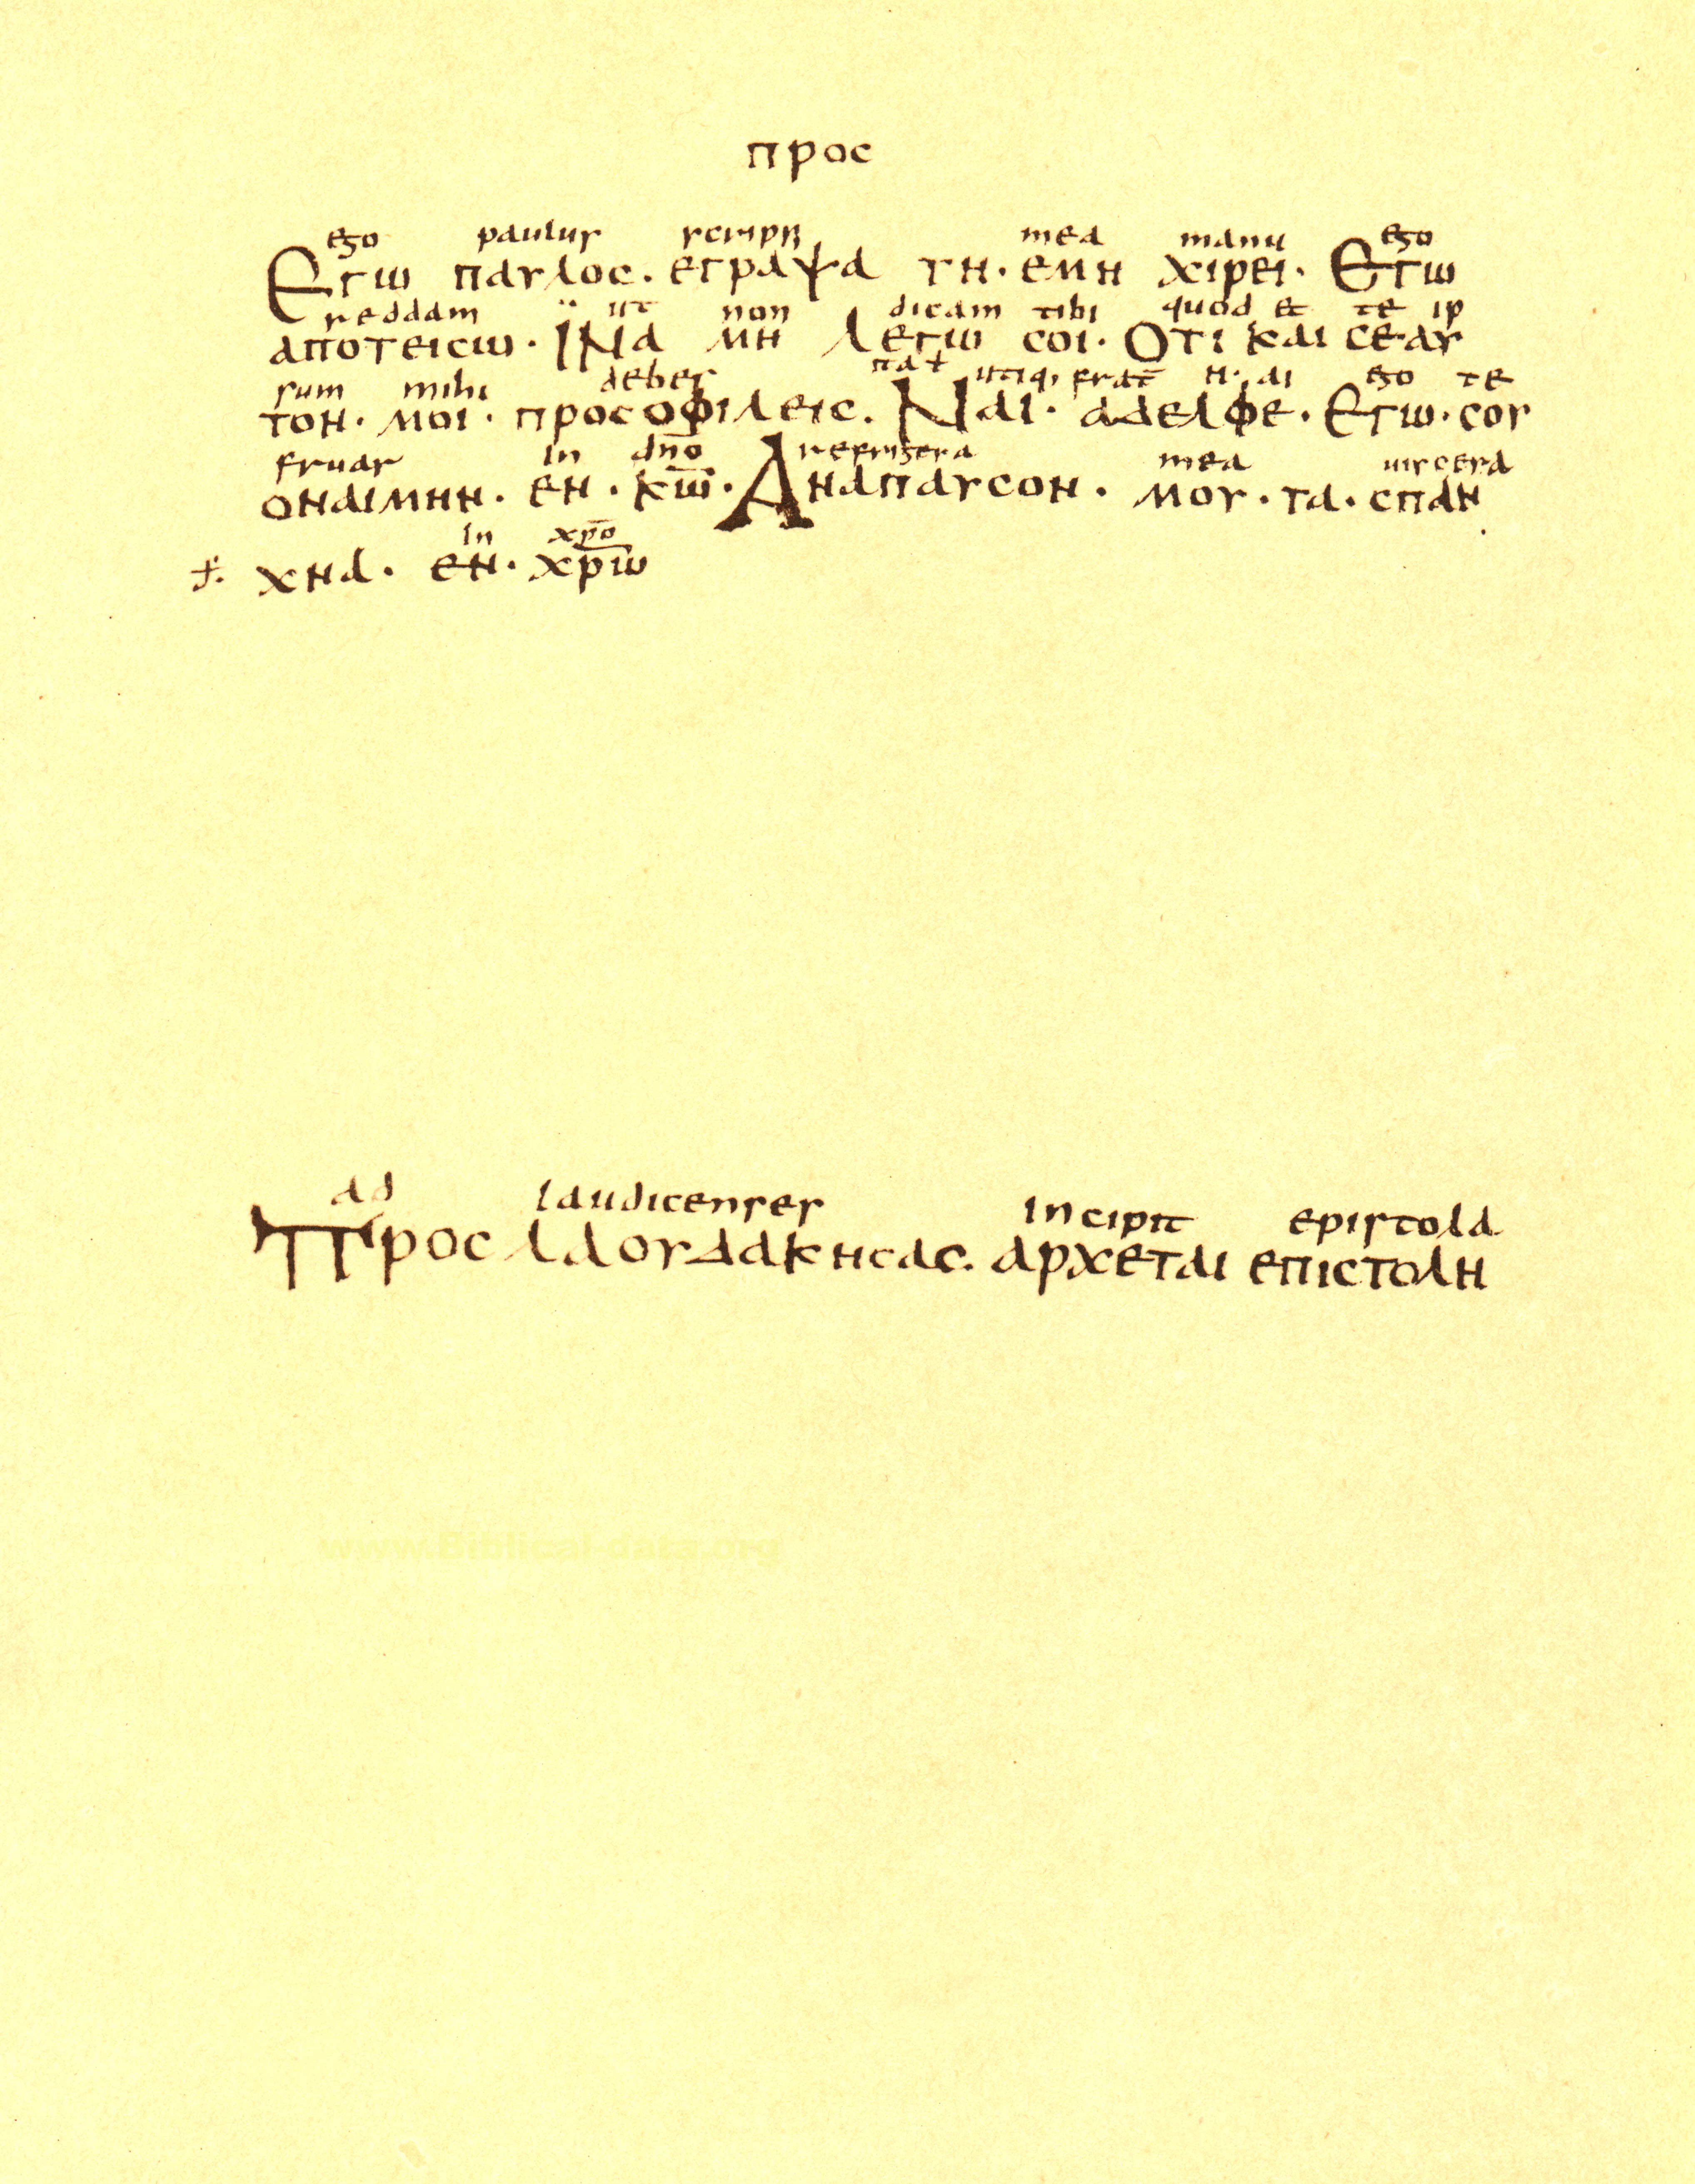 προς
ego paulus scripsi mea manu ego
Εγω παυλος. εγραψα τη. εμη χιρει. Εγω
reddam ut non dicam tibi quod et te ip
αποτεισω. Ϊνα μη λεγω σοι. Οτι και σεαυ
sum mihi debes ita utiq, frat ego te
τον. μοι. προσοφιλεις. Ναι. αδελφε. Εγω. σου
fruar in dn̅o refrigera mea uiscera
οναιμην. εν. κω̅. Αναπαυσον. μου. τα. σπλαν
in xp̅o
χνα. εν. χρ̅ω
ad laudicenses incipit epistola
Προς λαουδακησας. αρχεται επιστολη
www.Biblical-data.org